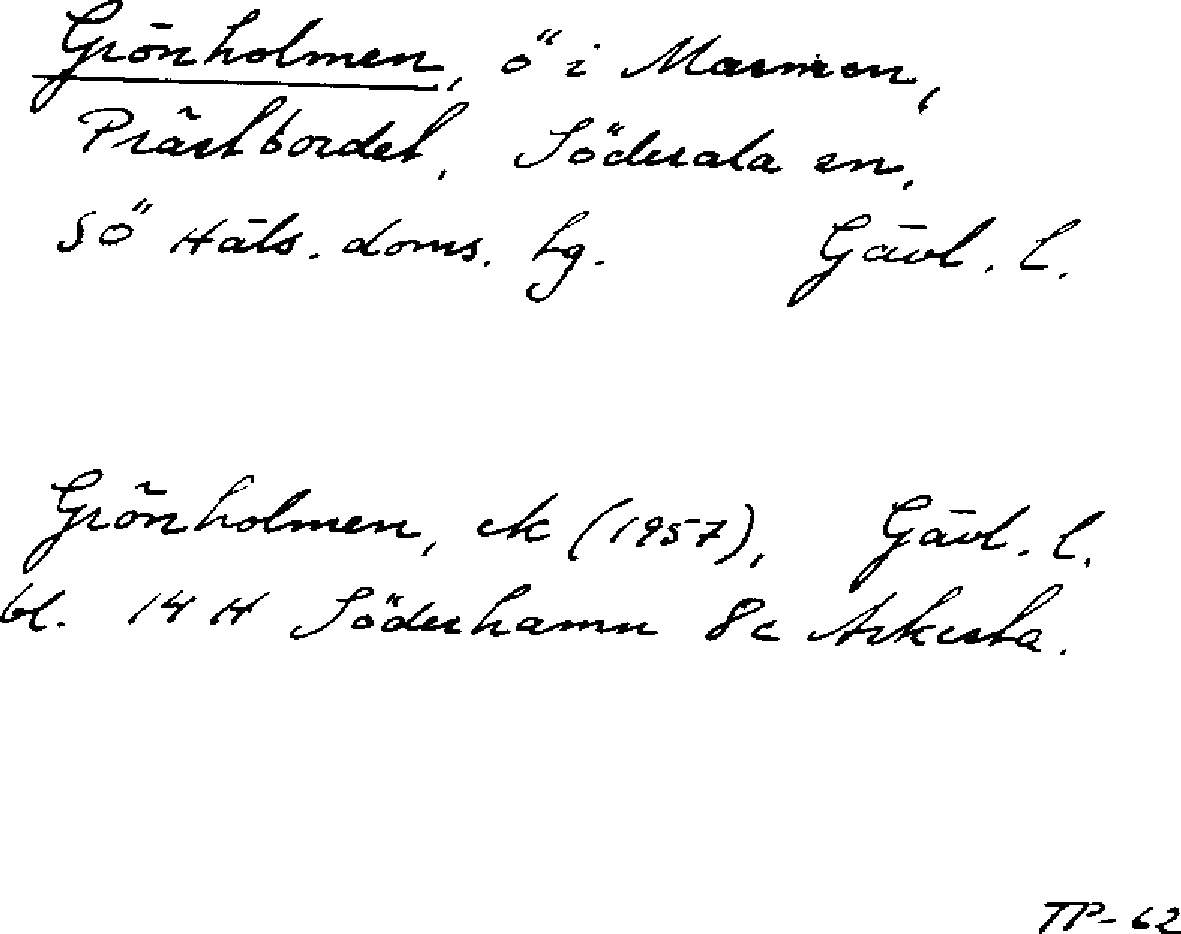 Grönholmen, ö i Marmen,
Prästbordet, Söderala sn,
SÖ Häls. doms. hg. Gävl. l.
Grönholmen, ek (1957), Gävl. l.
bl. 14 H Söderhamn 8c Askesta.
TP-62